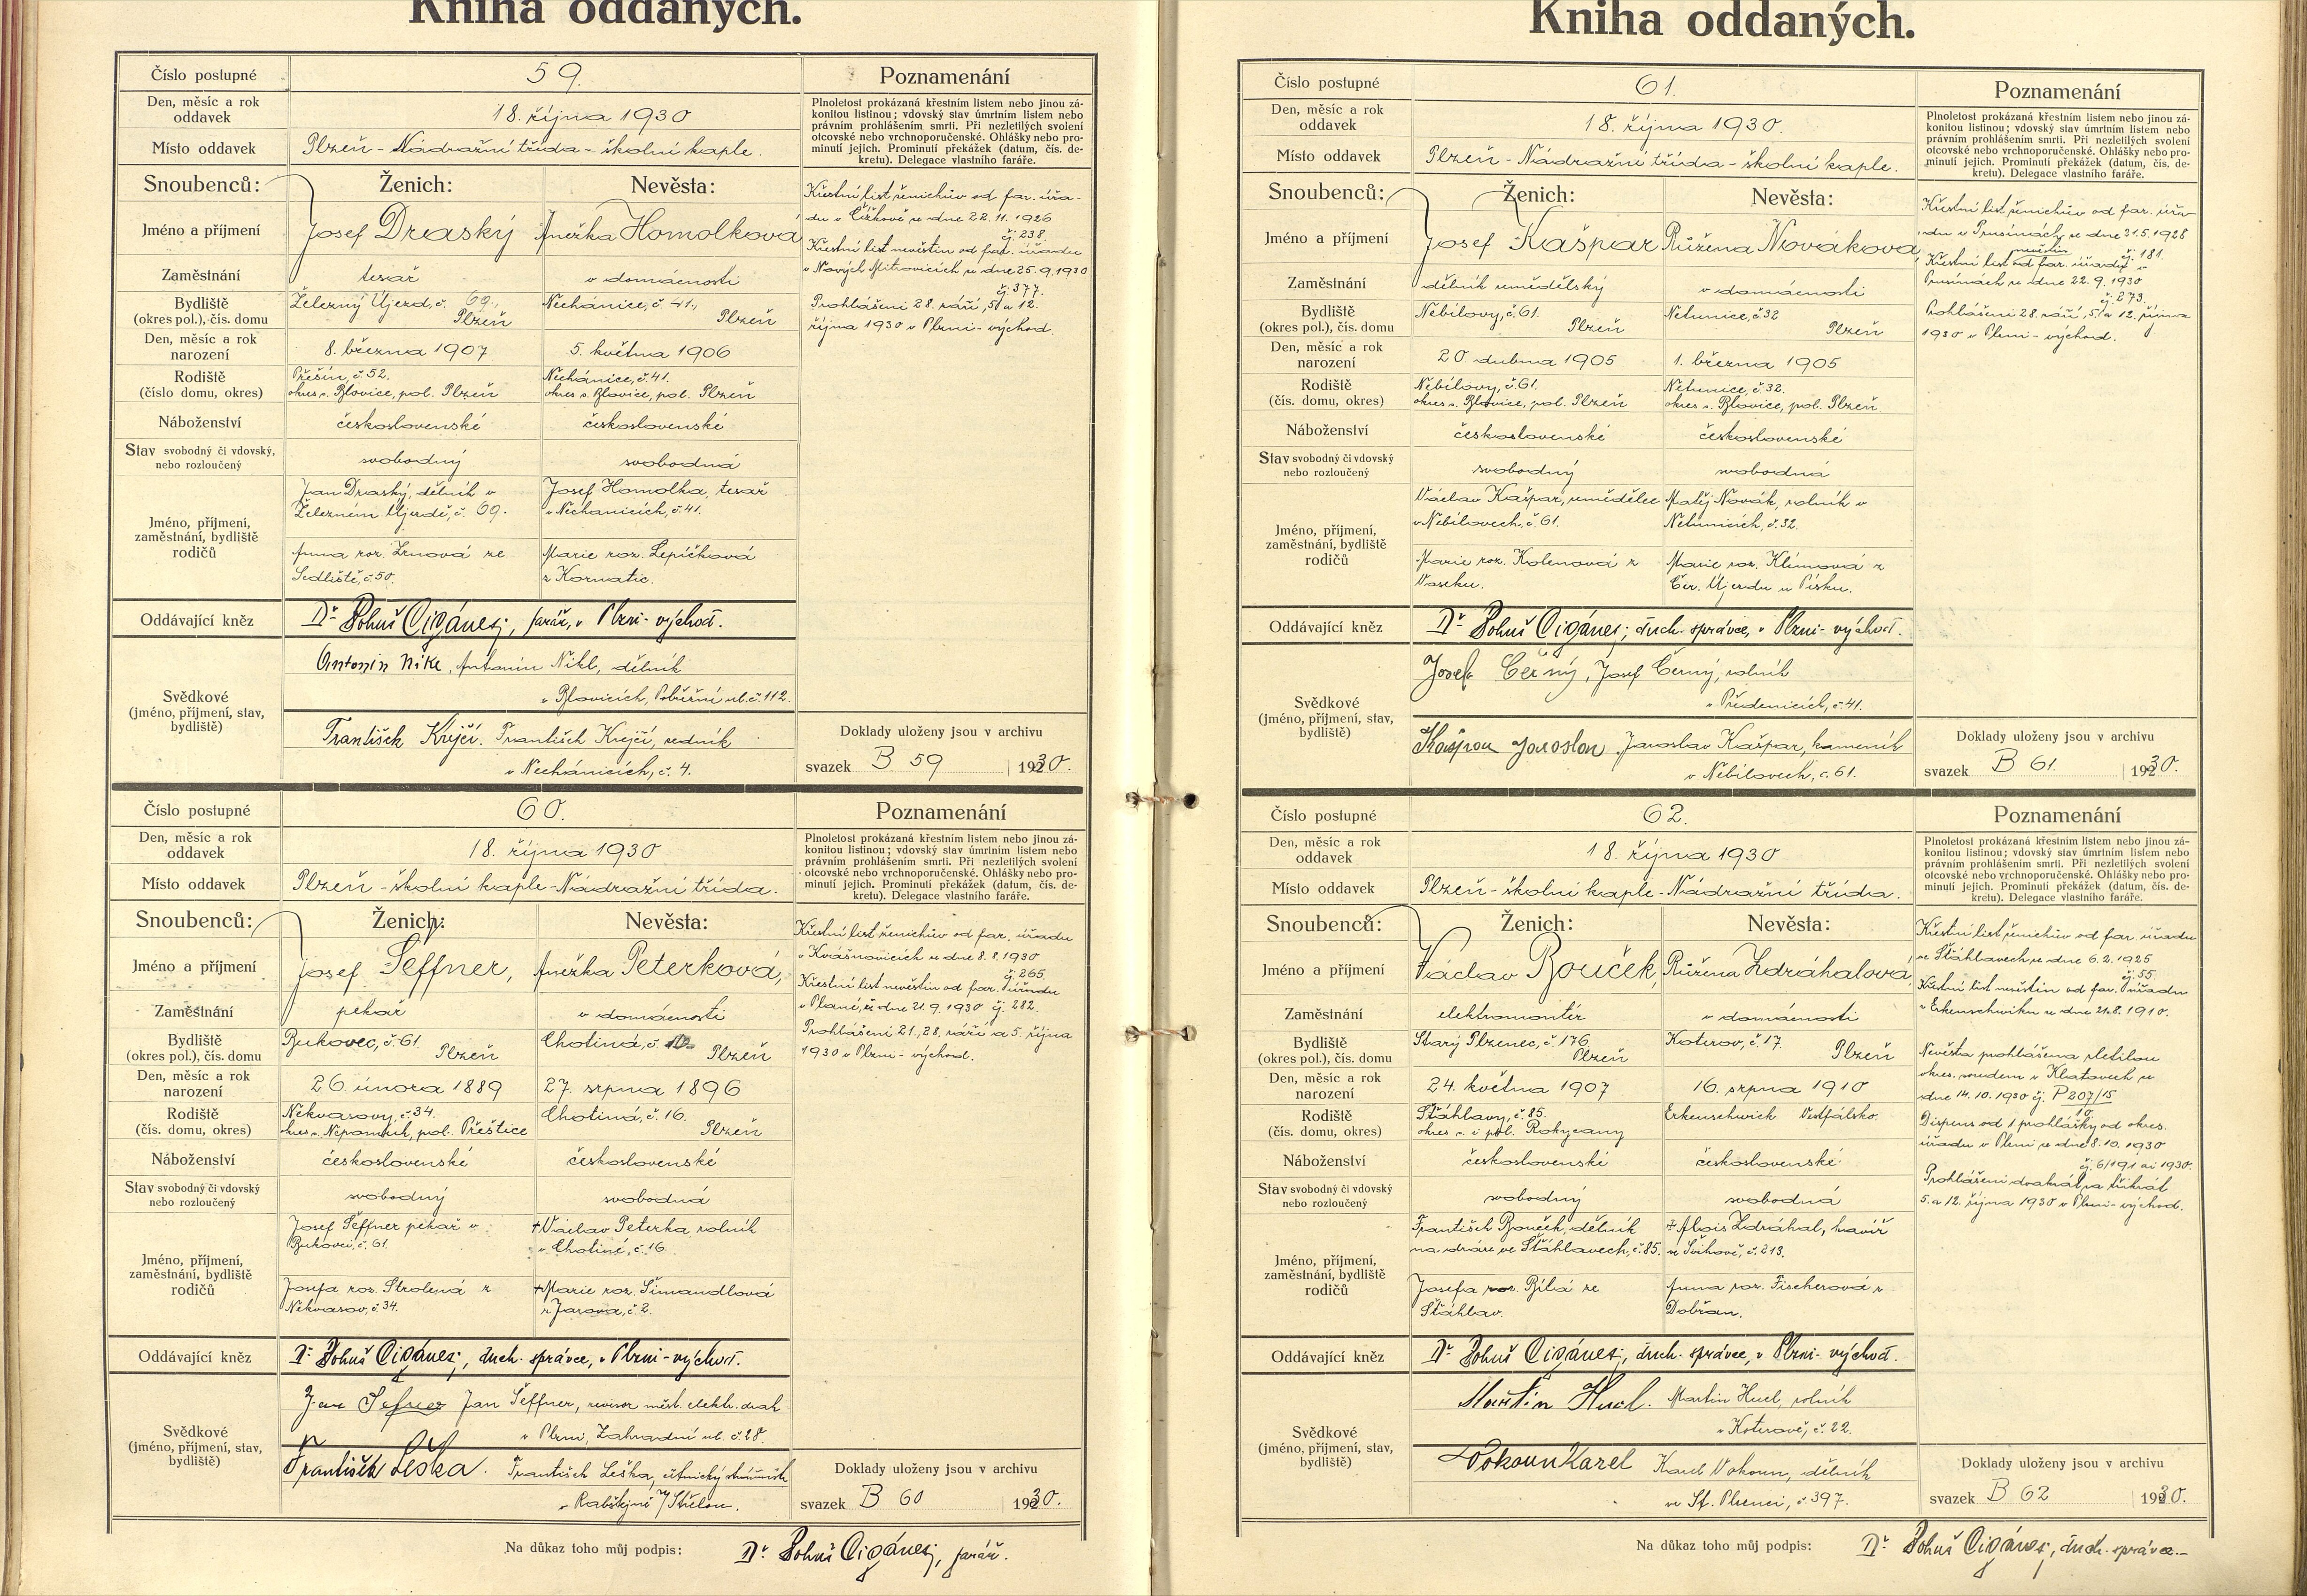 Kniha oddaných.
Číslo postupné 59. Poznamenání
Den, měsíc a rok oddavek 18. října 1930
Plnoletost prokázaná křestním listem nebo jinou zá-
konitou listinou; vdovský stav úmrtním listem nebo
právním prohlášením smrti. Při nezletilých svolení
otcovské nebo vrchnoporučenské. Ohlášky nebo pro-
minutí jejich. Prominutí překážek (datum, čís. de-
kretu). Delegace vlastního faráře.
Místo oddavek Plzeň - Nádražní třída - školní kaple.
Snoubenců: Ženich: Nevěsta:
Jméno a příjmení Josef Draský Anežka Homolková
Zaměstnání tesař v domácnosti
Bydliště Železný Újezd, č. 69., Nechánice, č. 41.,
(okres pol.), čís. domu Plzeň Plzeň
Den, měsíc a rok narození 8. března 1907 5. května 1906
Rodiště Přešín, č. 52. Nechánice, č. 41.
(číslo domu, okres) okres s. Blovice, pol. Plzeň okres s. Blovice, pol. Plzeň
Náboženství československé československé
Stav svobodný či vdovský, nebo rozloučený svobodný svobodná
Jméno, příjmení, zaměstnání, bydliště rodičů
Jan Draský, dělník v Josef Homolka, tesař
Železném Újezdě, č. 69. v Nechanicích, č. 41.
Anna roz. Zrnová ze Marie roz. Lepičková
Sedliště, č. 50. z Kornatic.
Křestní list ženichův od far. úřa-
du v Čížkově ze dne 22. 11. 1926
čj. 238.
Křestní list nevěstin od far. úřadu
v Nových Mitrovicích ze dne 25. 9. 1930
čj. 377.
Prohlášeni 28. září, 5. a 12.
října 1930 v Plzni - východ.
Oddávající kněz Dr. Bohuš Cigánej, farář, v Plzni - východ.
Svědkové (jméno, příjmení, stav, bydliště)
Antonin Nikl, Antonín Nikl, dělník
v Blovicích, Pobřežní ul. č. 112.
František Krejčí. František Krejčí, rolník
v Nechánicích, č. 4.
Doklady uloženy jsou v archivu
svazek B 59 1930.
Číslo postupné 60. Poznamenání
Den, měsíc a rok oddavek 18. října 1930
Plnoletost prokázaná křestním listem nebo jinou zá-
konitou listinou; vdovský stav úmrtním listem nebo
právním prohlášením smrti. Při nezletilých svolení
otcovské nebo vrchnoporučenské. Ohlášky nebo pro-
minutí jejich. Prominutí překážek (datum, čís. de-
kretu). Delegace vlastního faráře.
Místo oddavek Plzeň - školní kaple - Nádražní třída.
Snoubenců: Ženich: Nevěsta:
Jméno a příjmení Josef Šeffner, Anežka Peterková,
Zaměstnání pekař v domácnosti
Bydliště Bukovec, č. 61. Chotiná, č.
(okres pol.), čís. domu Plzeň Plzeň
Den, měsíc a rok narození 26. února 1889 27. srpna 1896
Rodiště Nekvasovy, č. 34. Chotiná, č. 16.
(čís. domu, okres) okres s. Nepomuk, pol. Přeštice Plzeň
Náboženství československé československé
Stav svobodný či vdovský nebo rozloučený svobodný svobodná
Jméno, příjmení, zaměstnání, bydliště rodičů
Josef Šeffner pekař v +Václav Peterka rolník
Bukovci, č. 61. v Chotiné, č. 16.
Josefa roz. Strolená z +Marie roz. Šimandlová
Nekvasov, č. 34. z Jarova, č. 2.
Křestní list ženichův od far. úřadu
v Kvášňovicích ze dne 8. 8. 1930
čj. 265.
Křestní list nevěstin od far. úřadu
v Plané, ze dne 21. 9. 1930 čj. 282.
Prohlášeni 21., 28. září a 5. října
1930 v Plzni - východ.
Oddávající kněz Dr. Bohuš Cigánej, duch. správce, v Plzni - východ.
Svědkové (jméno, příjmení, stav, bydliště)
Jan Jan Šeffner, revisor měst. elektr. drah
v Plzni, Zahradní ul. č. 28.
František Leška. František Leška, četnický
v Rabštejně n/Střelou.
Doklady uloženy jsou v archivu
svazek B 60 1930.
Na důkaz toho můj podpis: Dr. Bohuš Cigánej, farář.
Kniha oddaných.
Číslo postupné 61. Poznamenání
Den, měsíc a rok oddavek 18. října 1930.
Plnoletost prokázaná křestním listem nebo jinou zá-
konitou listinou; vdovský stav úmrtním listem nebo
právním prohlášením smrti. Při nezletilých svolení
otcovské nebo vrchnoporučenské. Ohlášky nebo pro-
minutí jejich. Prominutí překážek (datum, čís. de-
kretu). Delegace vlastního faráře.
Místo oddavek Plzeň - Nádražní třída - školní kaple.
Snoubenců: Ženich: Nevěsta:
Jméno a příjmení Josef Kašpar Růžena Nováková,
Zaměstnání dělník umědělský v domácnosti
Bydliště Nebílovy, č. 61. Netunice, č. 32
(okres pol.), čís. domu Plzeň Plzeň
Den, měsíc a rok narození 20. dubna 1905 1. března 1905
Rodiště Nebílovy, č. 61. Netunice, č. 32.
(čís. domu, okres) okres s. Blovice, pol. Plzeň okres s. Blovice, pol. Plzeň
Náboženství československé československé
Stav svobodný či vdovský nebo rozloučený svobodný svobodná
Jméno, příjmení, zaměstnání, bydliště rodičů
Václav Kašpar, umědělec Matěj Novák, rolník v
v Nebílovech, č. 61. Netunicích, č. 32.
Marie roz. Kolenová z Marie roz. Klímová z
Voseku. Čer. Újezdu u Písku.
Křestní list ženichův od far. úřa-
du v Prusinách ze dne 31. 5. 1928
čj. 181.
Křestní list nevěstin od far. úřadu v
Prusinách ze dne 22. 9. 1930
čj. 273.
Prohlášeni 28. září, 5. a 12. října
1930 v Plzni - východ.
Oddávající kněz Dr. Bohuš Cigánej, duch. správce, v Plzni - východ.
Svědkové (jméno, příjmení, stav, bydliště)
Josef Černý, Josef Černý, rolník
v Předenicích, č. 41.
Kašpar Jaroslav Jaroslav Kašpar, kameník
v Nebílovech, č. 61.
Doklady uloženy jsou v archivu
svazek B 61. 1930.
Číslo postupné 62. Poznamenání
Den, měsíc a rok oddavek 18. října 1930
Plnoletost prokázaná křestním listem nebo jinou zá-
konitou listinou; vdovský stav úmrtním listem nebo
právním prohlášením smrti. Při nezletilých svolení
otcovské nebo vrchnoporučenské. Ohlášky nebo pro-
minutí jejich. Prominutí překážek (datum, čís. de-
kretu). Delegace vlastního faráře.
Místo oddavek Plzeň - školní kaple - Nádražní třída.
Snoubenců: Ženich: Nevěsta:
Jméno a příjmení Václav Bouček, Růžena Zdráhalová,
Zaměstnání elektromontér v domácnosti
Bydliště Starý Plzenec, č. 176. Koterov, č. 17.
(okres pol.), čís. domu Plzeň Plzeň
Den, měsíc a rok narození 24. května 1907 16. srpna 1910
Rodiště Šťáhlavy, č. 85. Erkenschwick Vestfálsko.
(čís. domu, okres) okres s. i pol. Rokycany
Náboženství československé československé
Stav svobodný či vdovský nebo rozloučený svobodný svobodná
Jméno, příjmení, zaměstnání, bydliště rodičů
František Bouček, dělník + Alois Zdráhal, havíř
na dráze ve Šťáhlavech, č. 85. ve Švihově, č. 213.
Josefa roz. Bílá ze Anna roz. Fischerová z
Šťáhlav. Dobřan.
Křestní list ženichův od far. úřadu
ve Šťáhlavech ze dne 6. 2. 1925
čj. 55.
Křestní list nevěstin od far. úřadu
v Erkenschwiku ze dne 21. 8. 1910.
Nevěsta prohlášena zletilou
okres. soudem v Klatovech ze
dne 14. 10. 1930 čj. P 207/15
10.
Dispens od 1 prohlášky od okres.
úřadu v Plzni ze dne 8. 10. 1930
čj. 6/191 ai 1930.
Prohlášeni dvakrát za třikrát
5. a 12. října 1930 v Plzni - východ.
Oddávající kněz Dr. Bohuš Cigánej, duch. správce, v Plzni - východ.
Svědkové (jméno, příjmení, stav, bydliště)
Martin Hucl. Martin Hucl, rolník
v Koterově, č. 22.
Vokoun Karel Karel Vokoun, dělník
ve St. Plzenci, č. 397.
Doklady uloženy jsou v archivu
svazek B 62 1930.
Na důkaz toho můj podpis: Dr. Bohuš Cigánej, duch. správce.